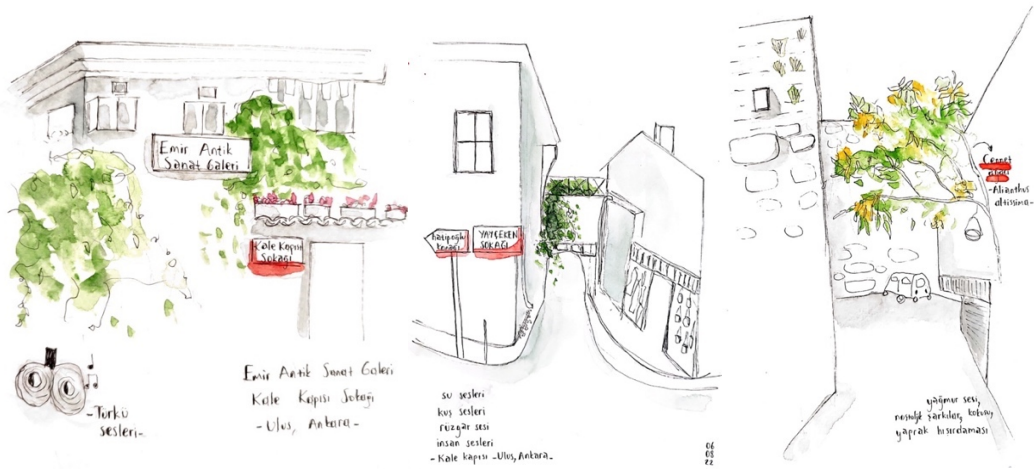 Emir Antik
Sanat Galeri
Kale Kapısı
Sokağı
-Türkü
sesleri-
Emir Antik Sanat Galeri
Kale Kapısı Sokağı
-Ulus, Ankara-
hatipoğlu
konağı
YAYÇEKEN
SOKAĞI
su sesleri
kuş sesleri
rüzgar sesi
insan sesleri
-Kale kapısı -Ulus, Ankara-
06
08
22
Cennet
ağacı
-Alianthus
altissima-
yağmur sesi,
nostaljik şarkılar, kokusu,
yaprak hışırdaması